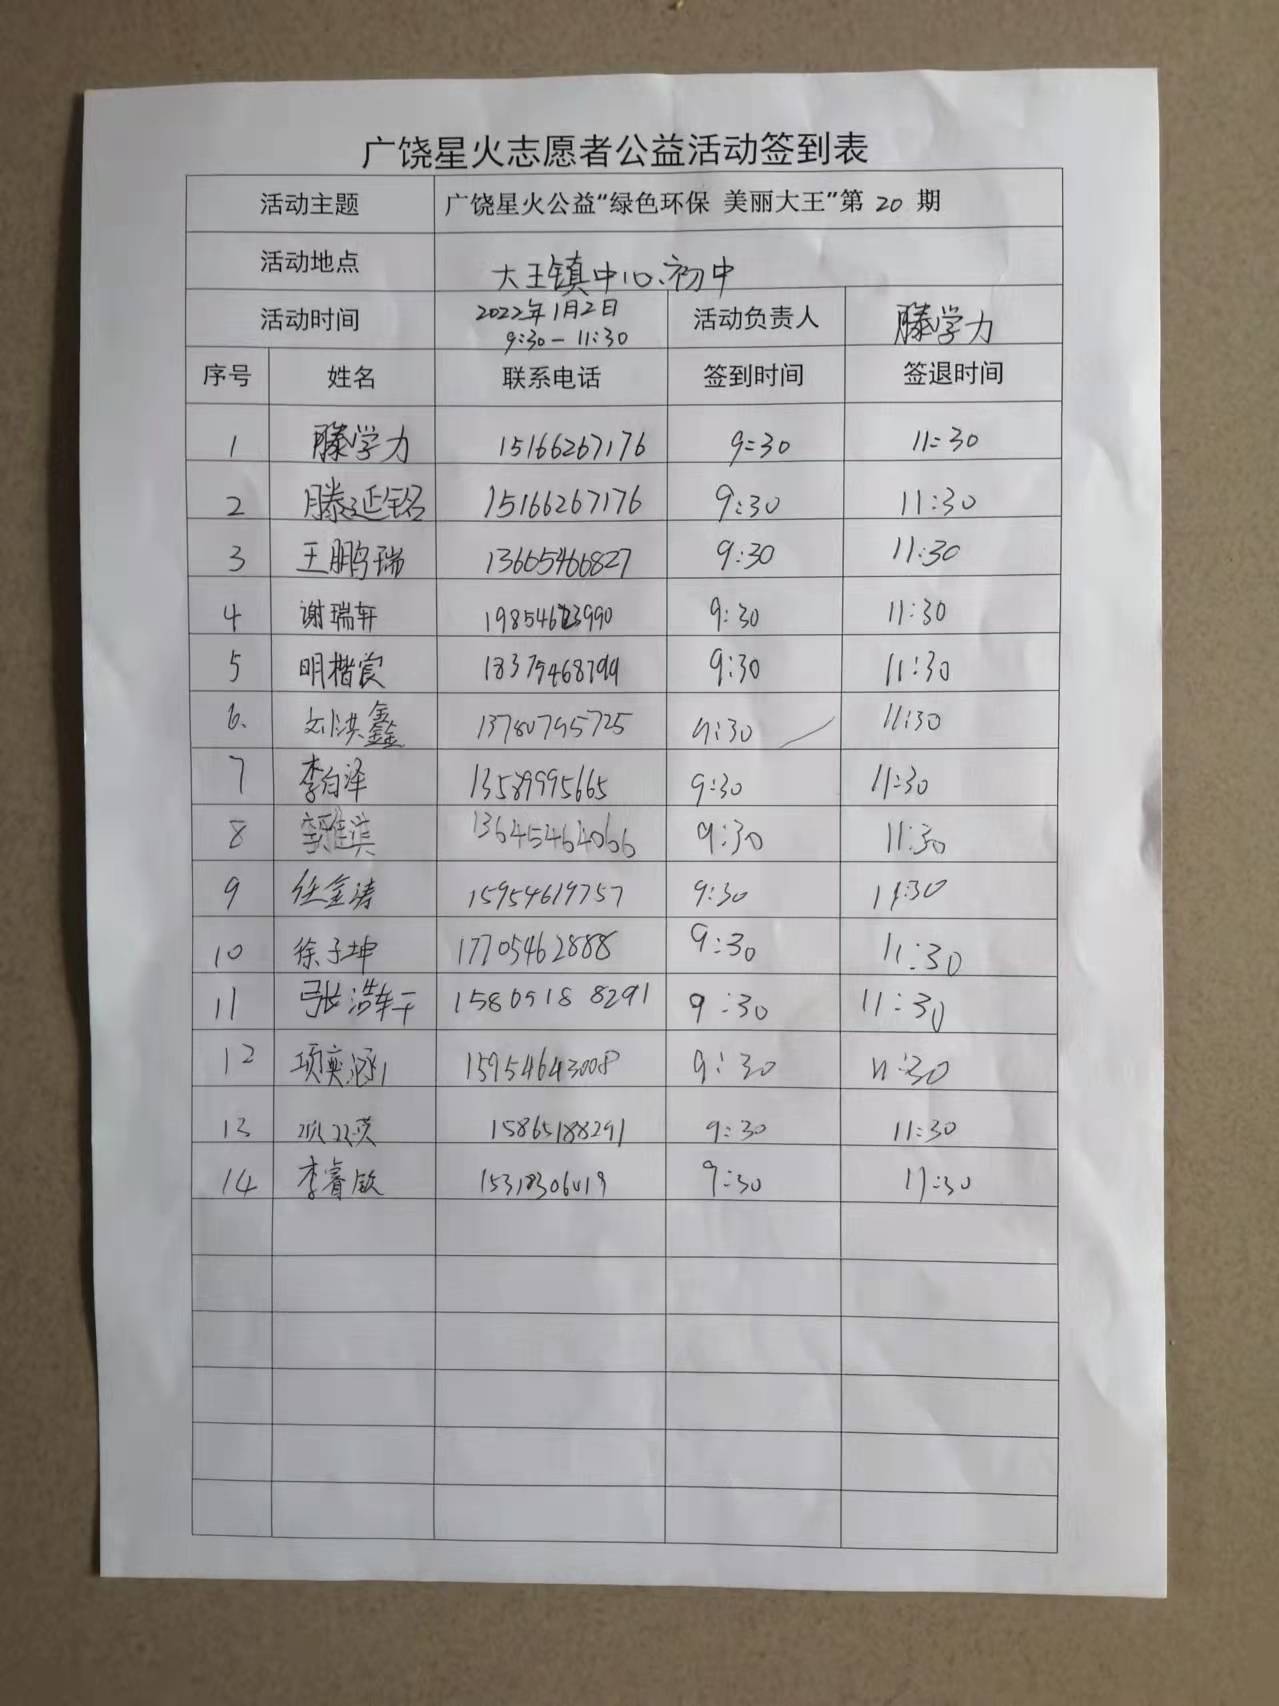 广饶星火志愿者公益活动签到表
活动主题 广饶星火公益“绿色环保 美丽大王”第 20 期
活动地点 大王镇中心初中
活动时间 2022年1月2日 9:30-11:30 活动负责人 滕学力
序号 姓名 联系电话 签到时间 签退时间
1 滕学力 15166267176 9:30 11:30
2 滕延铭 15166267176 9:30 11:30
3 王鹏瑞 13665466827 9:30 11:30
4 谢瑞轩 9:30 11:30
5 明楷宸 9:30 11:30
6. 刘洪鑫 13780795725 9:30 11:30
7 李伯泽 13589995665 9:30 11:30
8 13645464066 9:30 11:30
9 任金涛 15954619757 9:30 11:30
10 徐子坤 17705462888 9:30 11:30
11 张浩轩 9:30 11:30
12 项奕涵 15954643008 9:30 11:30
13 15865188291 9:30 11:30
14 李睿敏 9:30 11:30